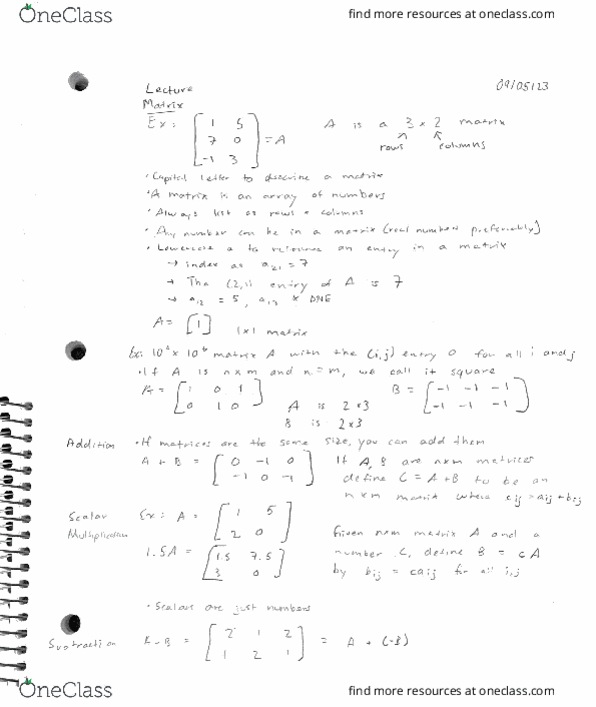 OneClass find more resources at oneclass.com
Lecture 09/05/23
Matrix
Ex: [ 1 5
7 0
-1 3 ] = A A is a 3 x 2 matrix
rows columns
· Capital letter to describe a matrix
· A matrix is an array of numbers
· Always list as rows x columns
· Any number can be in a matrix (real numbers preferably)
· Lowercase a to reference an entry in a matrix
→ index as a21 = 7
→ The (2,1) entry of A is 7
→ a12 = 5, DNE
A = [1] 1x1 matrix
Ex: matrix A with the (i,j) entry 0 for all i and j
· If A is nxm and n=m, we call it square
A = [ 1 0 1
0 1 0 ] A is 2x3 B = [ -1 -1 -1
-1 -1 -1 ]
B is 2x3
Addition · If matrices are the same size, you can add them
A + B = [ 0 -1 0
-1 0 -1 ] If A, B are nxm matrices
define C = A + B to be an
nxm matrix where cij = aij + bij
Scalar Multiplication Ex: A = [ 1 5
2 0 ] Given nxm matrix A and a
1.5A = [ 1.5 7.5
3 0 ] number C, define B = cA
by bij = caij for all i,j
· Scalars are just numbers
Subtraction A - B = [ 2 1 2
1 2 1 ] = A + (-B)
OneClass find more resources at oneclass.com